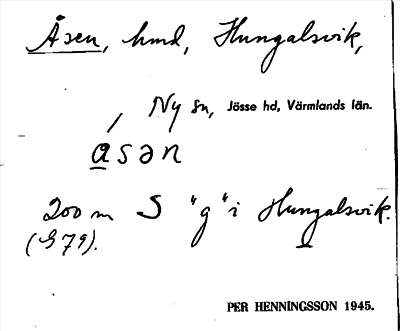 Åsen, hmd, Hungalsvik,
Ny sn, Jösse hd, Värmlands län.
́asən
200 m S "g" i Hungalsvik.
(G 79).
PER HENNINGSSON 1945.